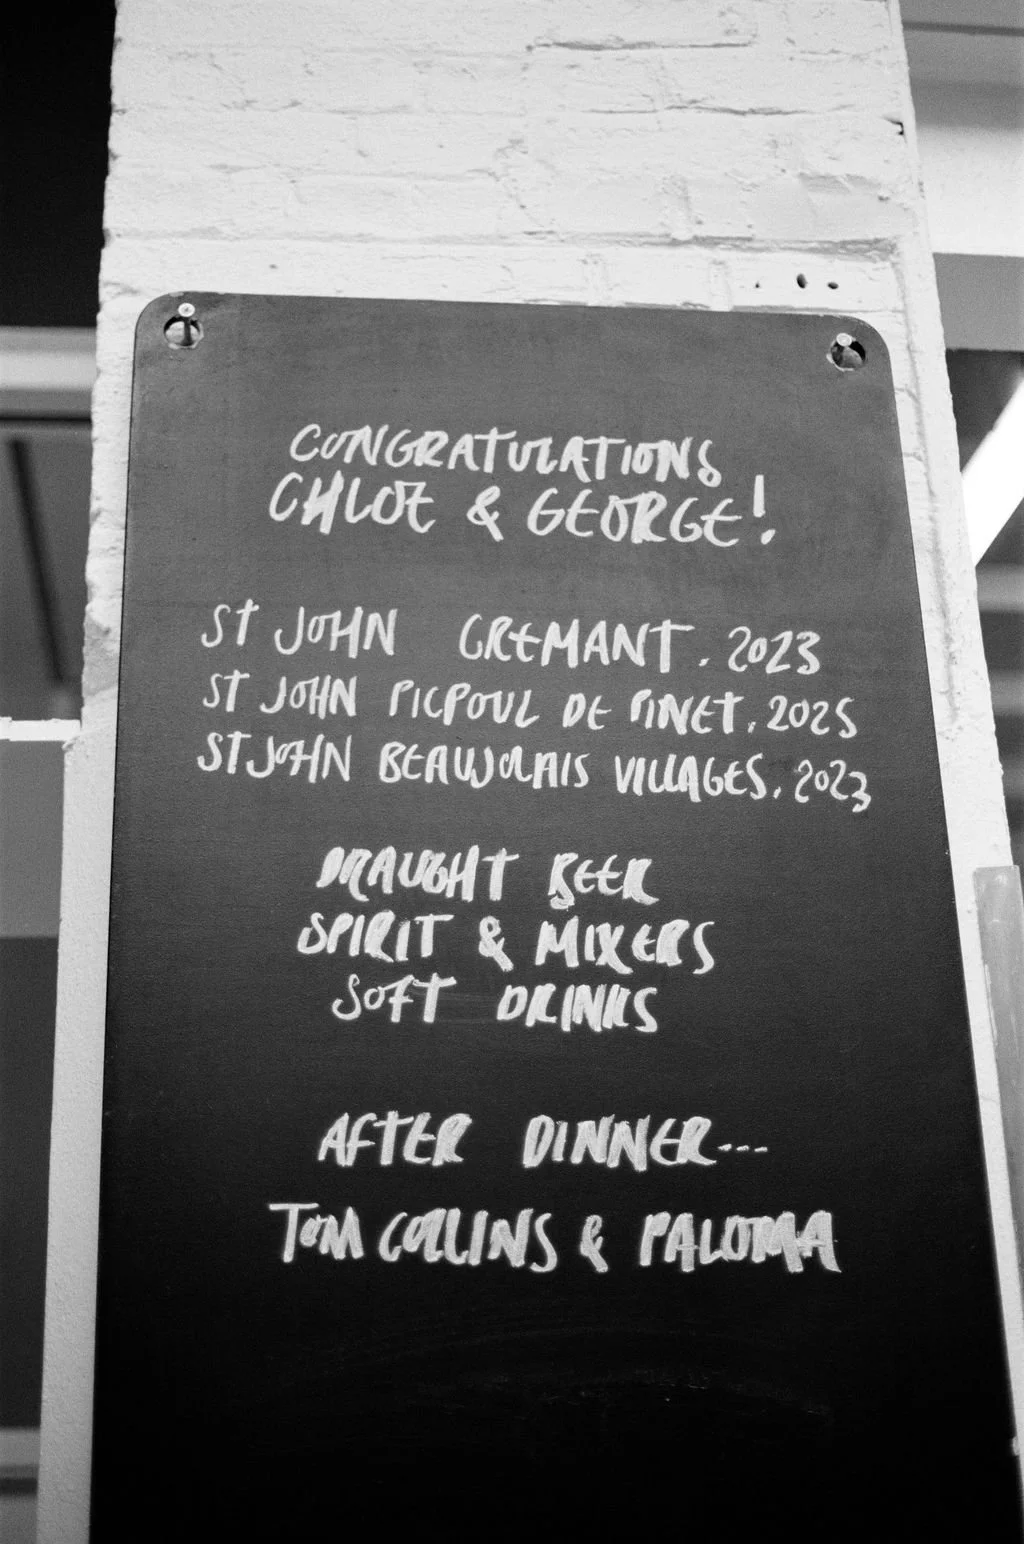 CONGRATULATIONS
CHLOE & GEORGE!
ST JOHN CREMANT. 2023
ST JOHN PICPOUL DE PINET. 2025
ST JOHN BEAUJOLAIS VILLAGES. 2023
DRAUGHT BEER
SPIRIT & MIXERS
SOFT DRINKS
AFTER DINNER...
TOM COLLINS & PALOMA